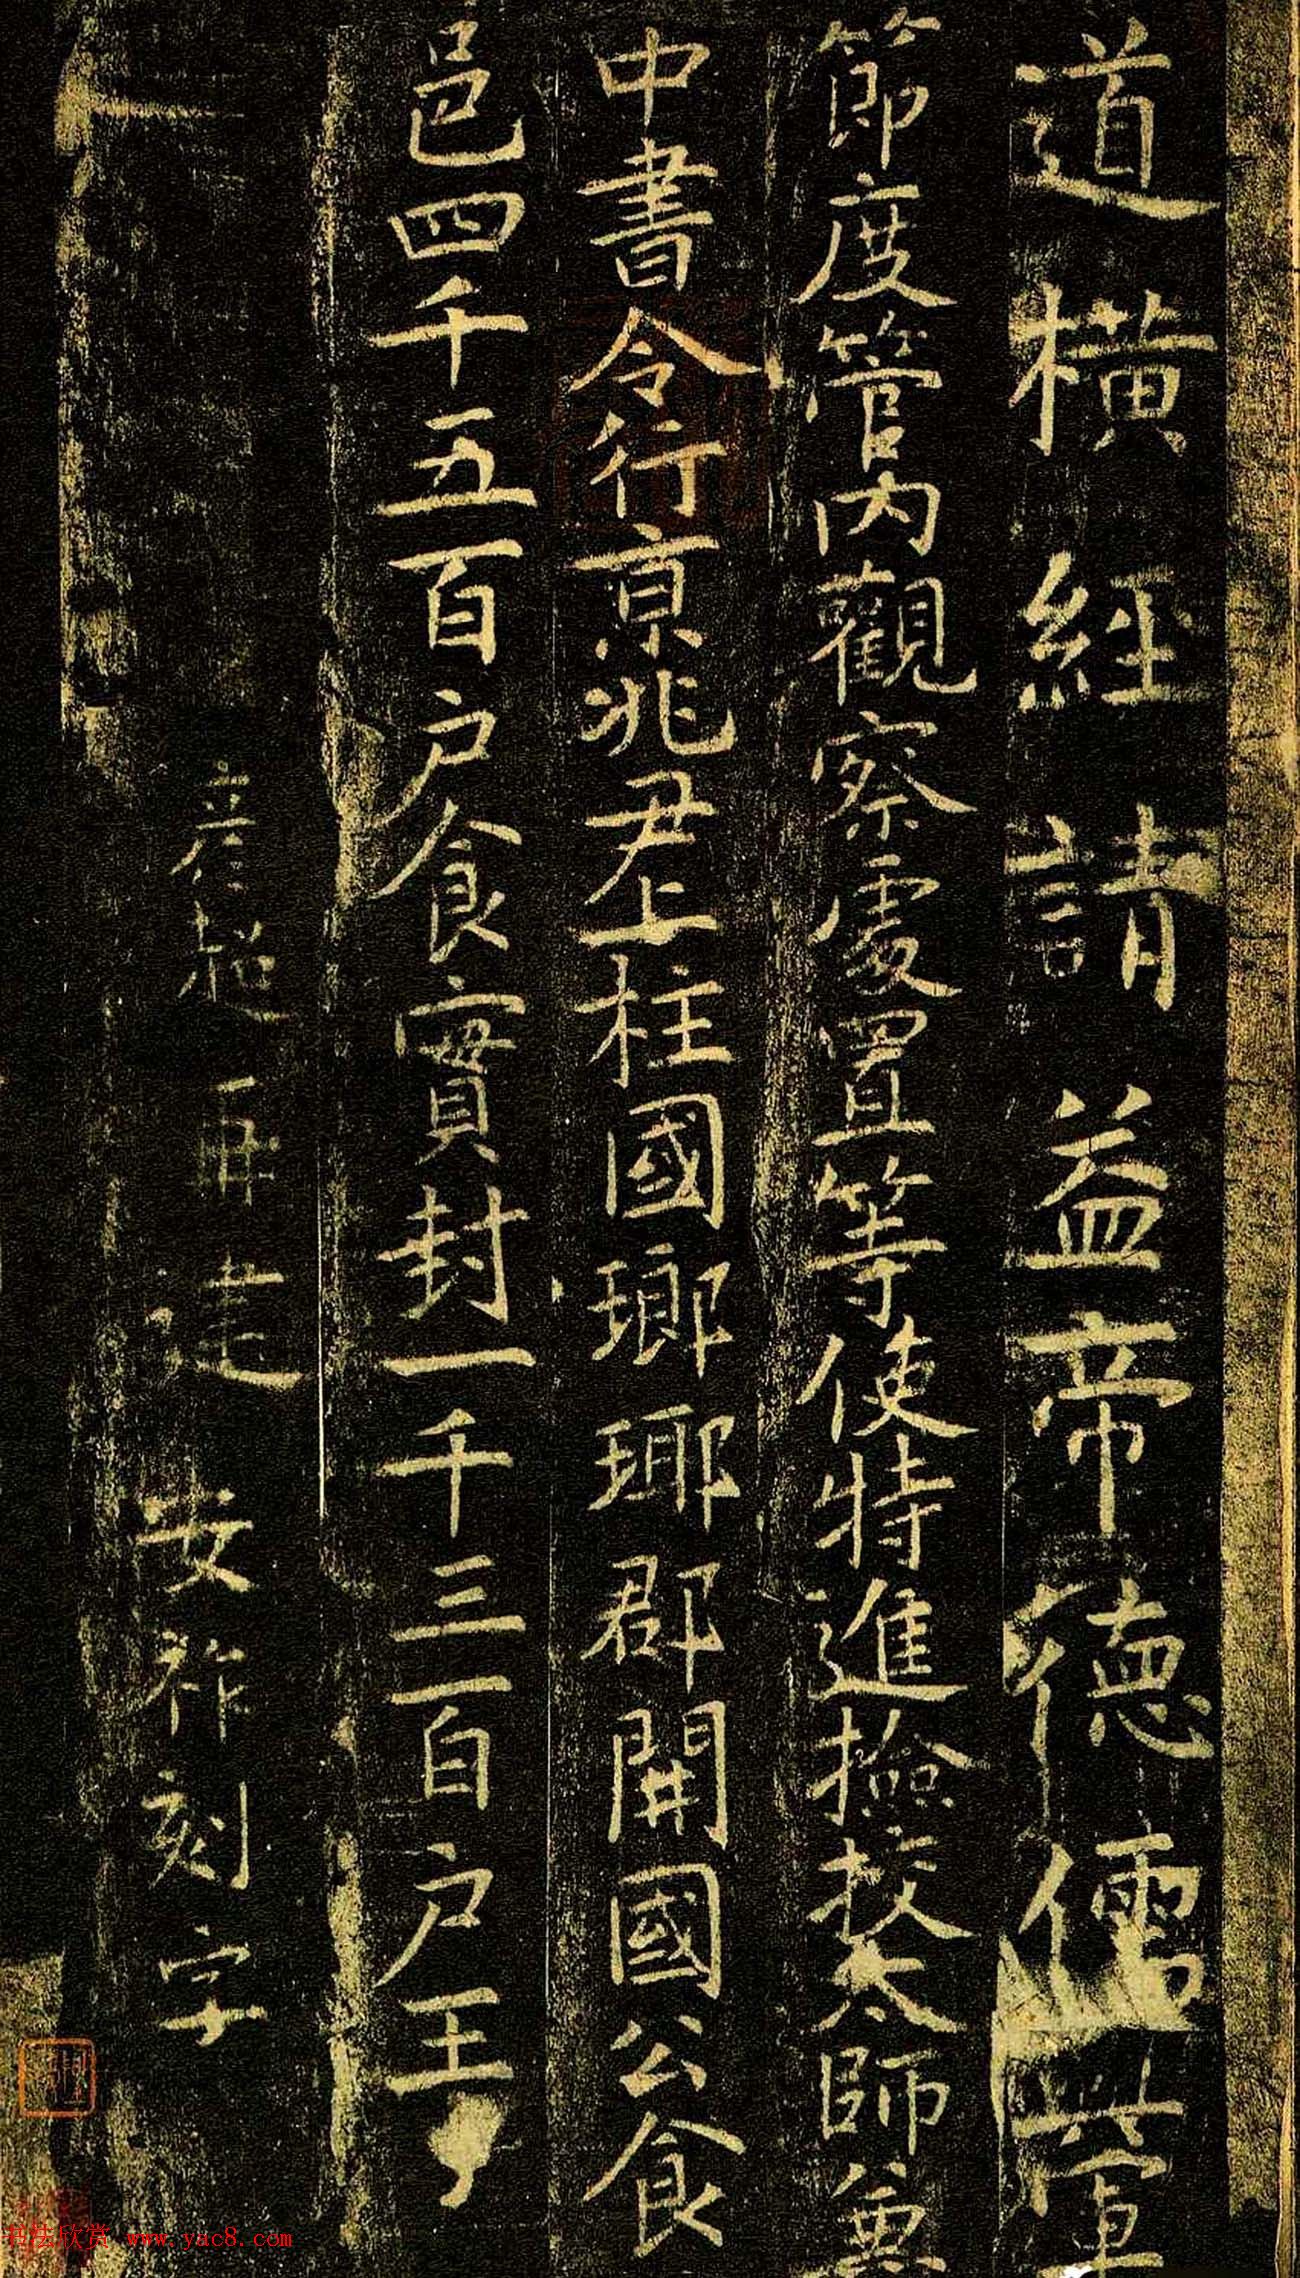 道橫經請益帝德儒軍
節度管內觀察處置等使特進撿挍太師兼
中書令行京兆尹上柱國瑯瑘郡開國公食
邑四千五百户食實封一千三百户王
彥超再建
安祚刻字
书法欣赏 www.yac8.com